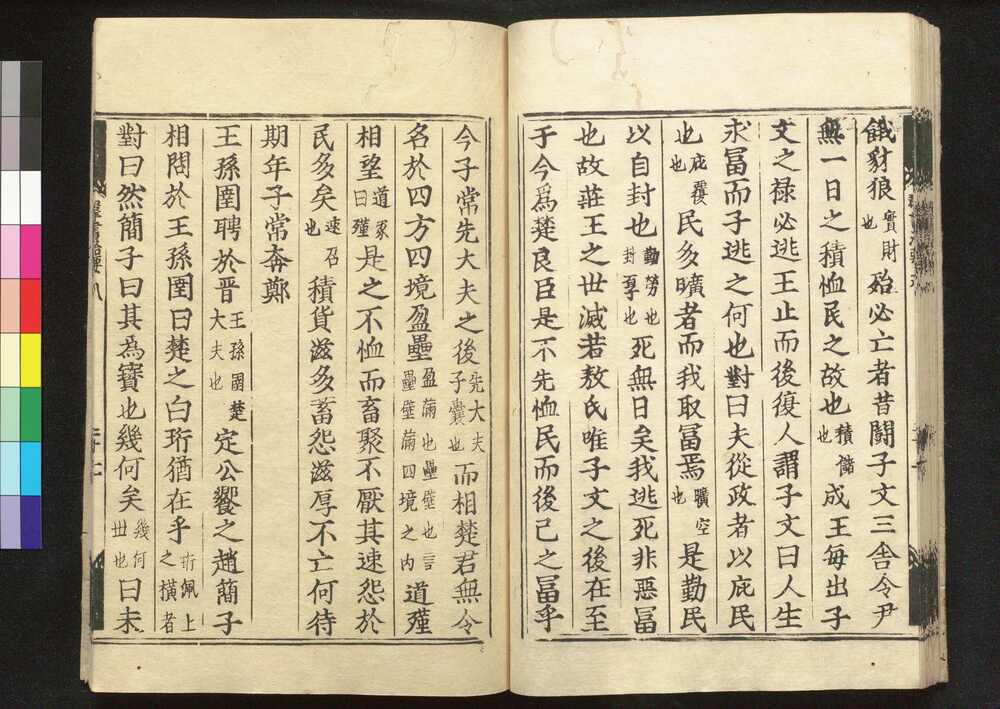 餓豺狼實財也殆必亡者昔鬪子文三舎令尹
無一日之積恤民之故也積儲也成王毎出子
文之祿必逃王止而後復人謂子文曰人生
求冨而子逃之何也對曰夫從政者以庇民
也庇覆也民多曠者而我取冨焉曠空也是勤民
以自封也勤勞也封厚也死無日矣我逃死非惡冨
也故莊王之世滅若敖氏唯子文之後在至
于今爲楚良臣是不先恤民而後己之冨乎
今子常先大夫之後先大夫子囊也而相楚君無令
名於四方四境盈壘盈滿也壘壁也言壘壁滿四境之内道殣
相望道冢曰殣是之不恤而畜聚不厭其速怨於
民多矣速召也積貨滋多蓄怨滋厚不亡何待
期年子常奔鄭
王孫圉聘於晋王孫圉楚大夫也定公饗之趙簡子
相問於王孫圉曰楚之白珩猶在乎珩佩上之横者
對曰然簡子曰其為寳也幾何矣幾何世也曰未
群書治要八
二十二